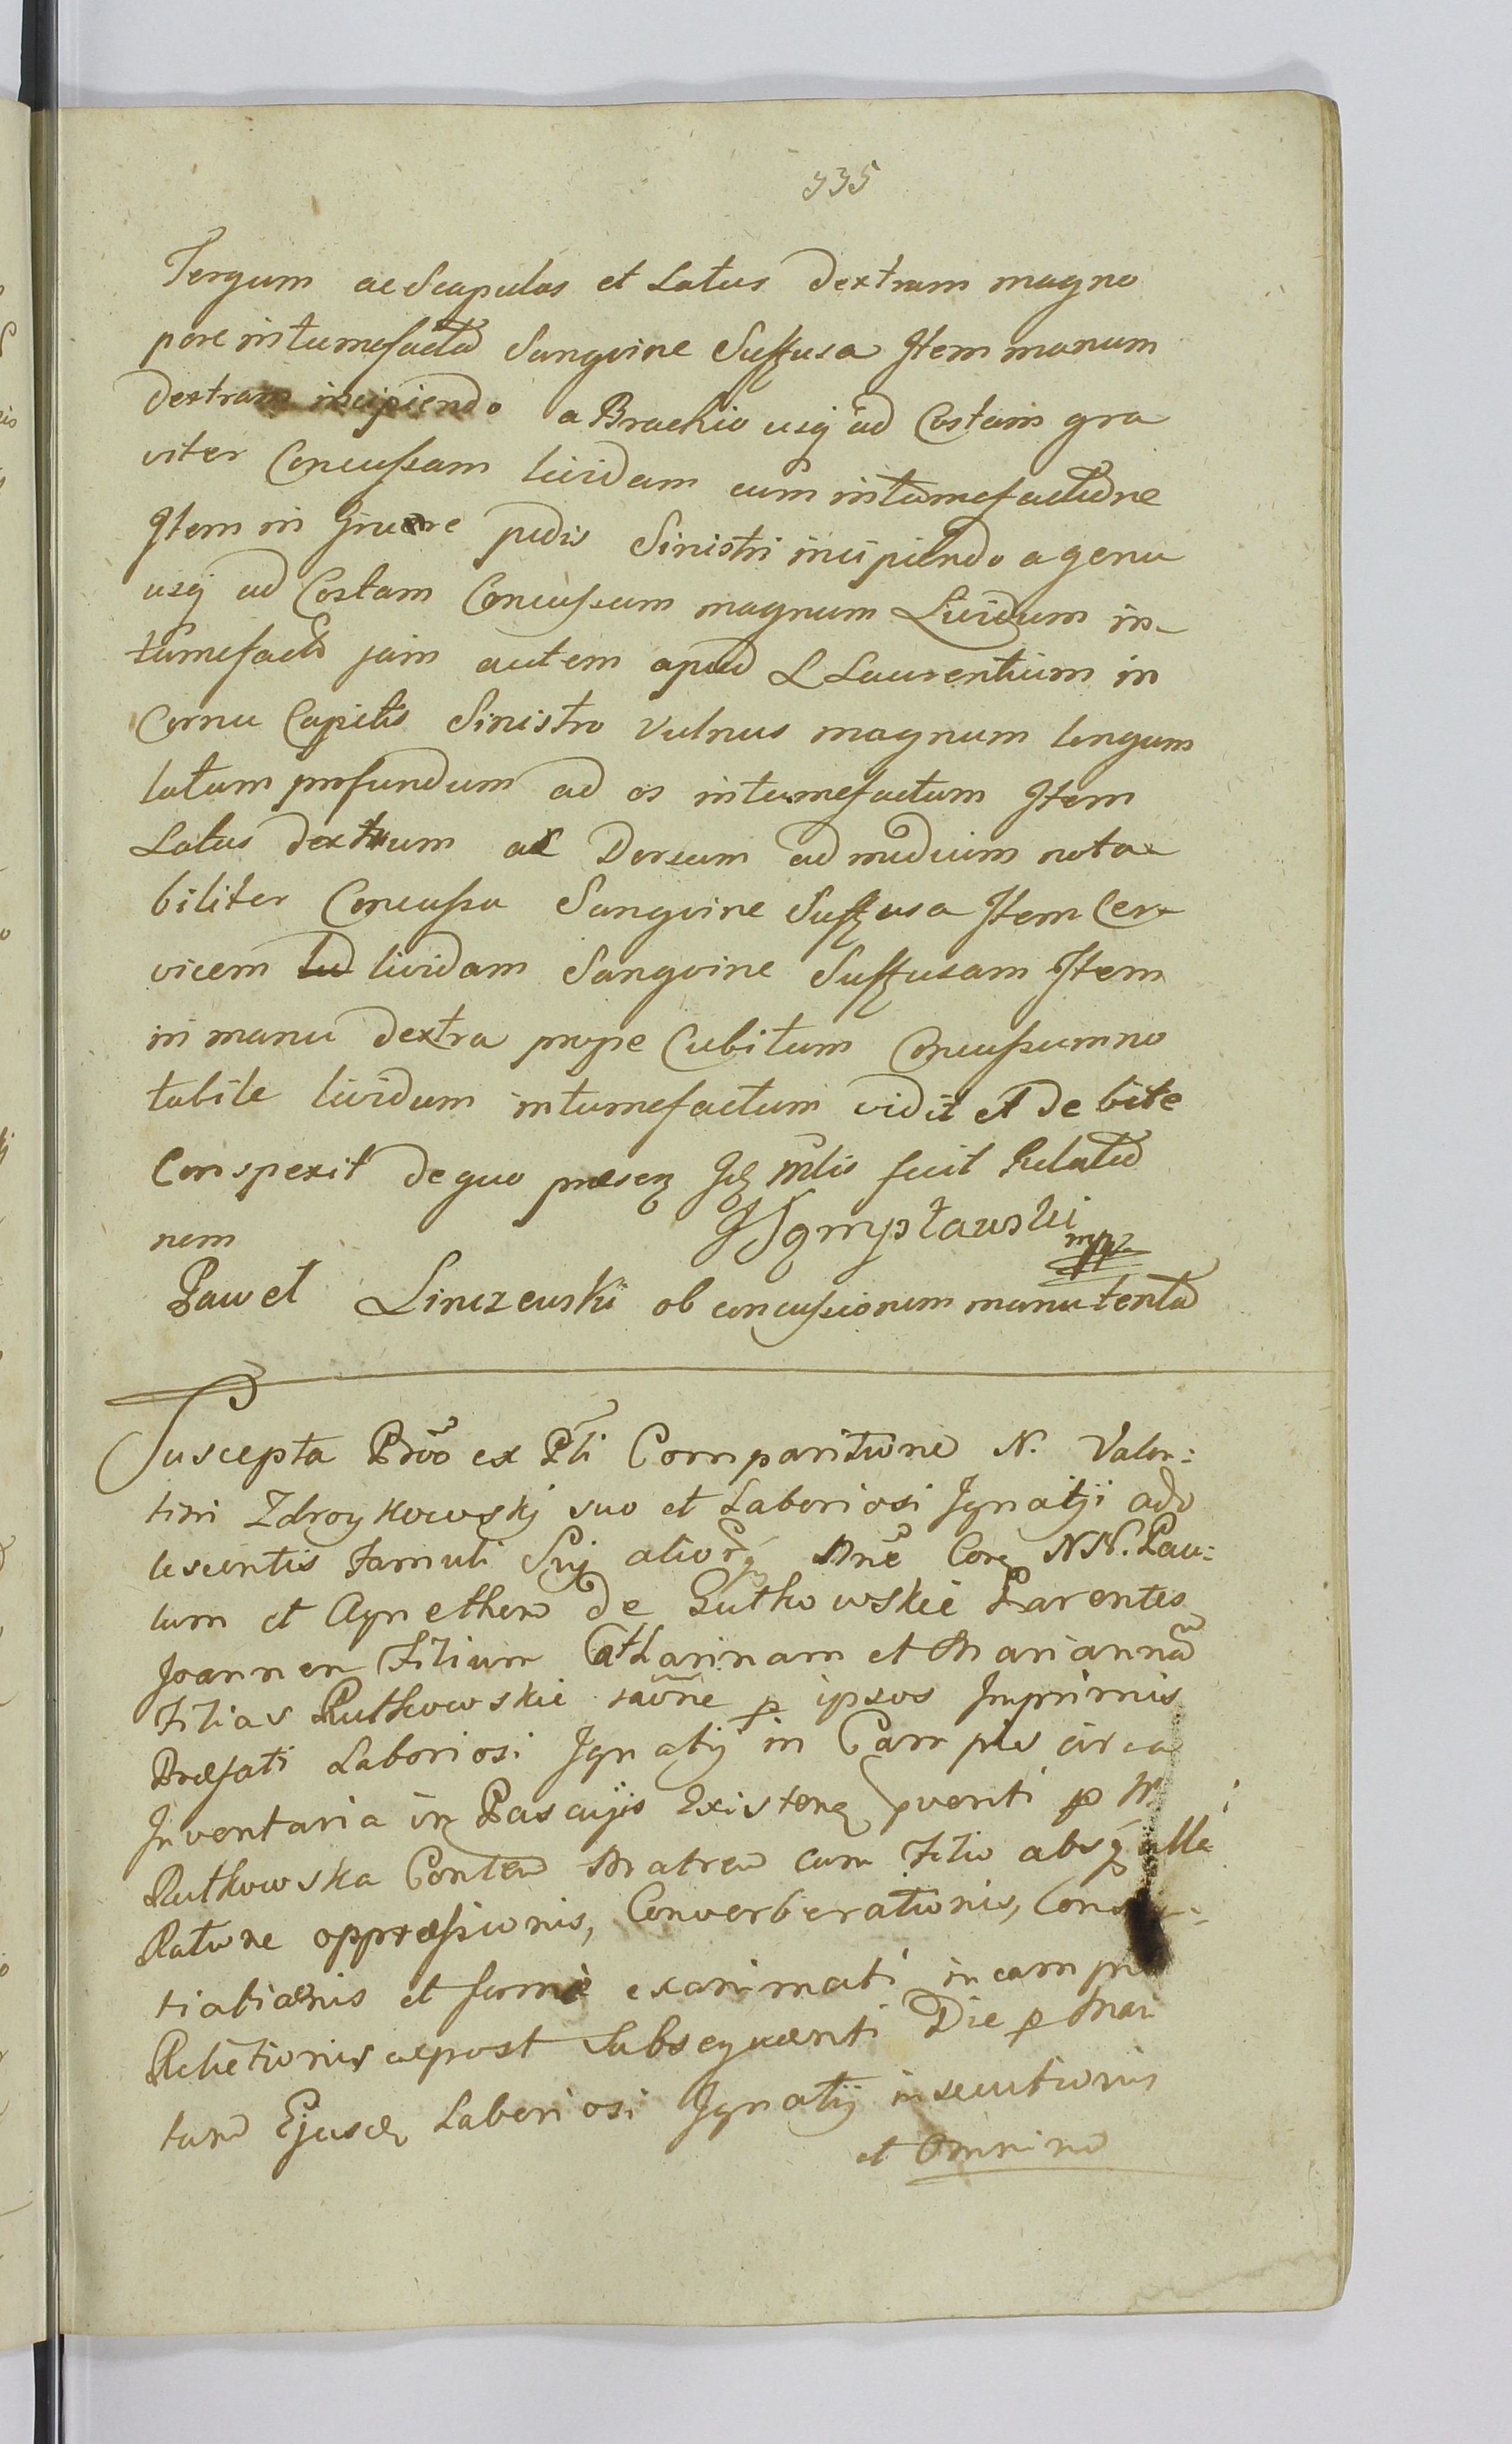 335
Tergum ac Scapulas et Latus dextrum magno
pere intumefacta Sangvine Suffusa Item manum
dextram incipiendo a Brachio usq ad Costam gra
viter Concussam lividam cum intumefactione
Item in Crure pedis Sinistri incipiendo a genu
usq ad Costam Concussum magnum Lividum in-
tumefactu jam autem apud L Laurentium in
Cornu Capitis Sinistro Vulnus magnum longum
latum profundum ad os intumefactum Item
Latus dextrum ac Dorsum ad medium nota
biliter Concussa Sangvine Suffusa Item Cer
vicem lividam Sangvine Suffusam Item
in manu dextra prope Cubitum Concussum no
tabile lividum intumefactum vidit et Debite
Conspexit de quo præsen Idem Mlis fecit Relatio
nem
mpp
Pawel Linczewski ob concussionem manu tenta
Suscepta Prõõ ex Pti Comparitione N. Valen:
tini Zdroykowskj suo et Laboriosi Ignatji ado
lescentis Famuli Suj Mne Cora NN. Pau:
lum et Agnethem de Gutkowskie Parentes
Joannem Filium Catharinam et Marianna
Filias Rutkowskie raõne p ipsos Imprimis
Præfati Laboriosi Ignatij in Campis circa
Inventaria in Pascuijs Existen pventi p M
Rutkowska Conten Matrem cum Filio absq ulla
Ratione oppressionis, Converberationis,
tiationis et fermè exanimati in campis
Relictionis ac post Subsequenti Die p Mai
tam Ejusd Laboriosi Ignatij insecutionis
et Omnino